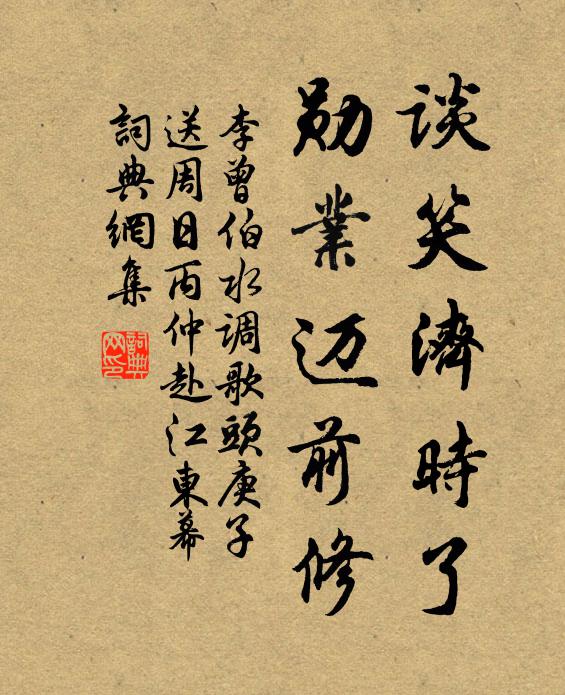 谈笑濟時了
勋業迈前修
李曾伯水调歌頭庚子
送周日丙仲赴江東幕
詞典網集
詞典网印